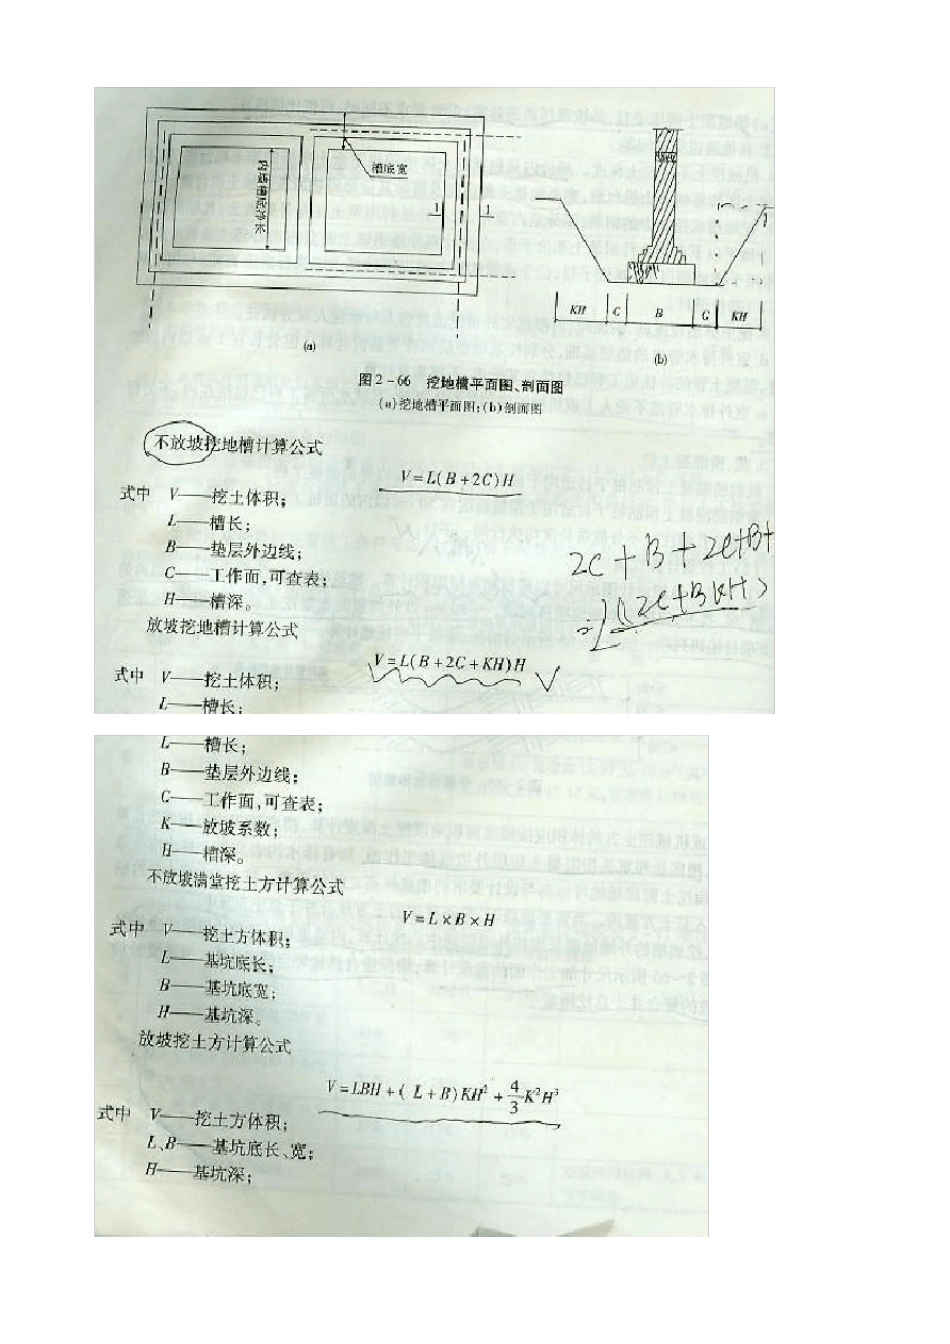 槽底宽
内墙槽底净长
1
1
(a)
KH
C
B
C
KH
(b)
图2-66 挖地槽平面图、剖面图
(a)挖地槽平面图;(b)剖面图
不放坡挖地槽计算公式
V=L(B+2C)H
式中 V——挖土体积;
L——槽长;
B——垫层外边线;
C——工作面,可查表;
H——槽深。
2C+B+2C+B+
放坡挖地槽计算公式
V=L(B+2C+KH)H
式中 V——挖土体积;
L——槽长;
L——槽长;
B——垫层外边线;
C——工作面,可查表;
K——放坡系数;
H——槽深。
不放坡满堂挖土方计算公式
V=L×B×H
式中 V——挖土方体积;
L——基坑底长;
B——基坑底宽;
H——基坑深。
放坡挖土方计算公式
V=LBH+(L+B)KH²+4/3K²H³
式中 V——挖土方体积;
L、B——基坑底长、宽;
H——基坑深;